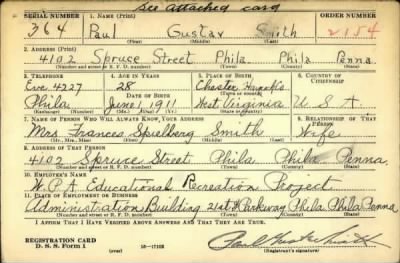 See attached card
SERIAL NUMBER 1. NAME (Print) ORDER NUMBER
364 Paul Gustav Smith 2154
(First) (Middle) (Last)
2. ADDRESS (Print)
4102 Spruce Street Phila Phila Penna.
(Number and street or R. F. D. number) (Town) (County) (State)
3. TELEPHONE 4. AGE IN YEARS 5. PLACE OF BIRTH 6. COUNTRY OF CITIZENSHIP
Eve 4227 28 Chester
DATE OF BIRTH (Town or county)
Phila June 1 1911 West Virginia U.S.A.
(Exchange) (Number) (Mo.) (Day) (Yr.) (State or country)
7. NAME OF PERSON WHO WILL ALWAYS KNOW YOUR ADDRESS 8. RELATIONSHIP OF THAT PERSON
Mrs Frances Spielberg Smith Wife
(Mr., Mrs., Miss) (First) (Middle) (Last)
9. ADDRESS OF THAT PERSON
4102 Spruce Street Phila Phila. Penna.
(Number and street or R. F. D. number) (Town) (County) (State)
10. EMPLOYER'S NAME
W.P.A Educational Recreation Project
11. PLACE OF EMPLOYMENT OR BUSINESS
Administration Building 21st & Parkway Phila Phila Penna
(Number and street or R. F. D. number) (Town) (County) (State)
I AFFIRM THAT I HAVE VERIFIED ABOVE ANSWERS AND THAT THEY ARE TRUE.
REGISTRATION CARD
D. S. S. Form 1 (over) 16—17105 Paul Gustav Smith
(Registrant's signature)